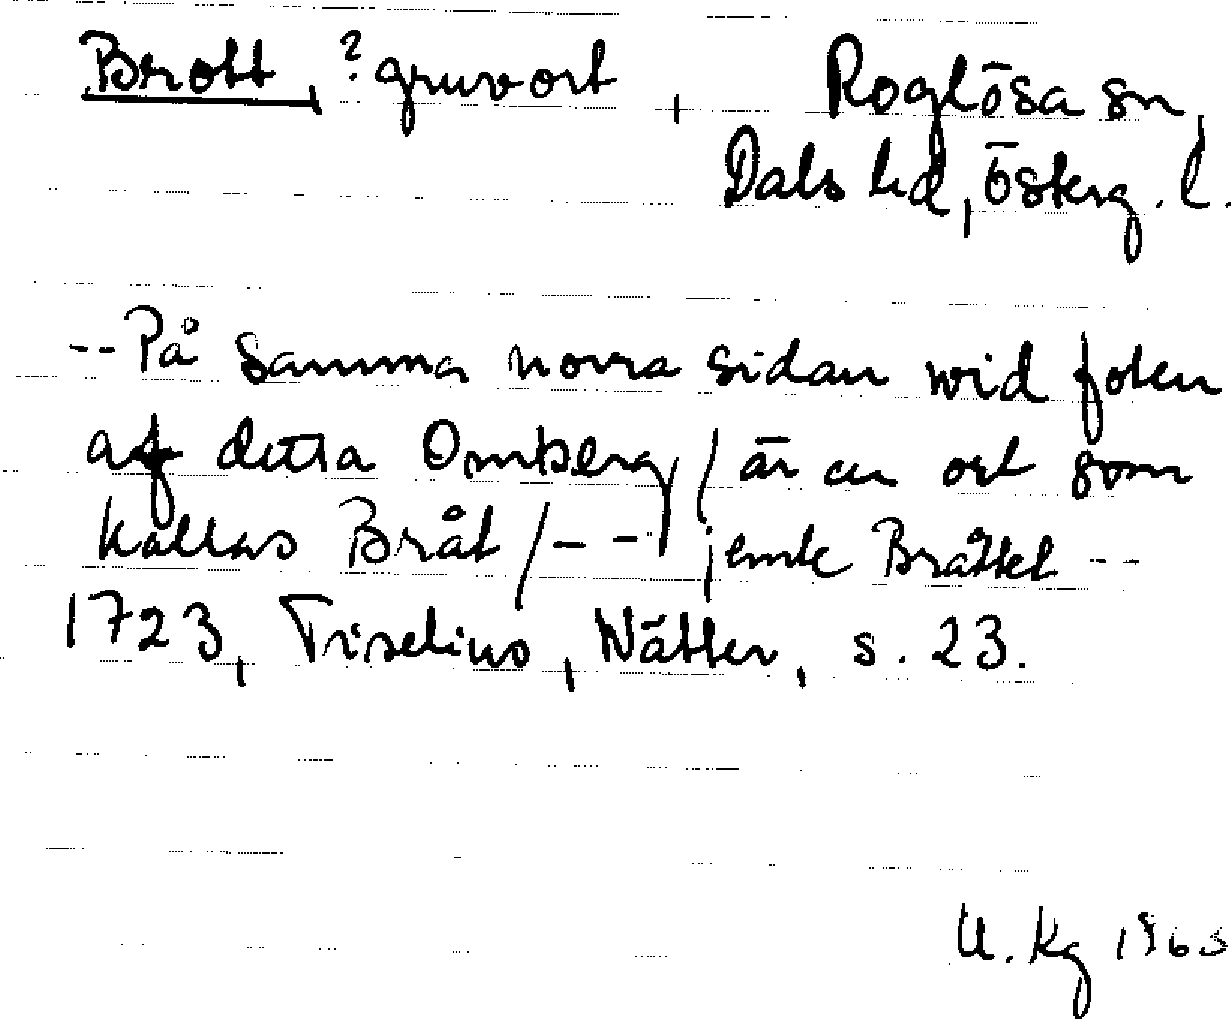 Brott, ?gruvort, Roglösa sn,
Dals hd, Österg. l.
-- På samma norra sidan wid foten
af detta Omberg / är en ort som
kallas Bråt / -- jemte Bråttet --
1723, Tiselius, Wätter, s. 23.
U. Kg